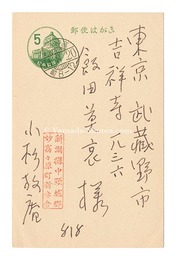 郵便はがき
5
東京 武蔵野市
吉祥寺八三六
飯田莫哀様
新潟縣中頸城郡
妙高々原町新赤倉
小杉放庵
8/8